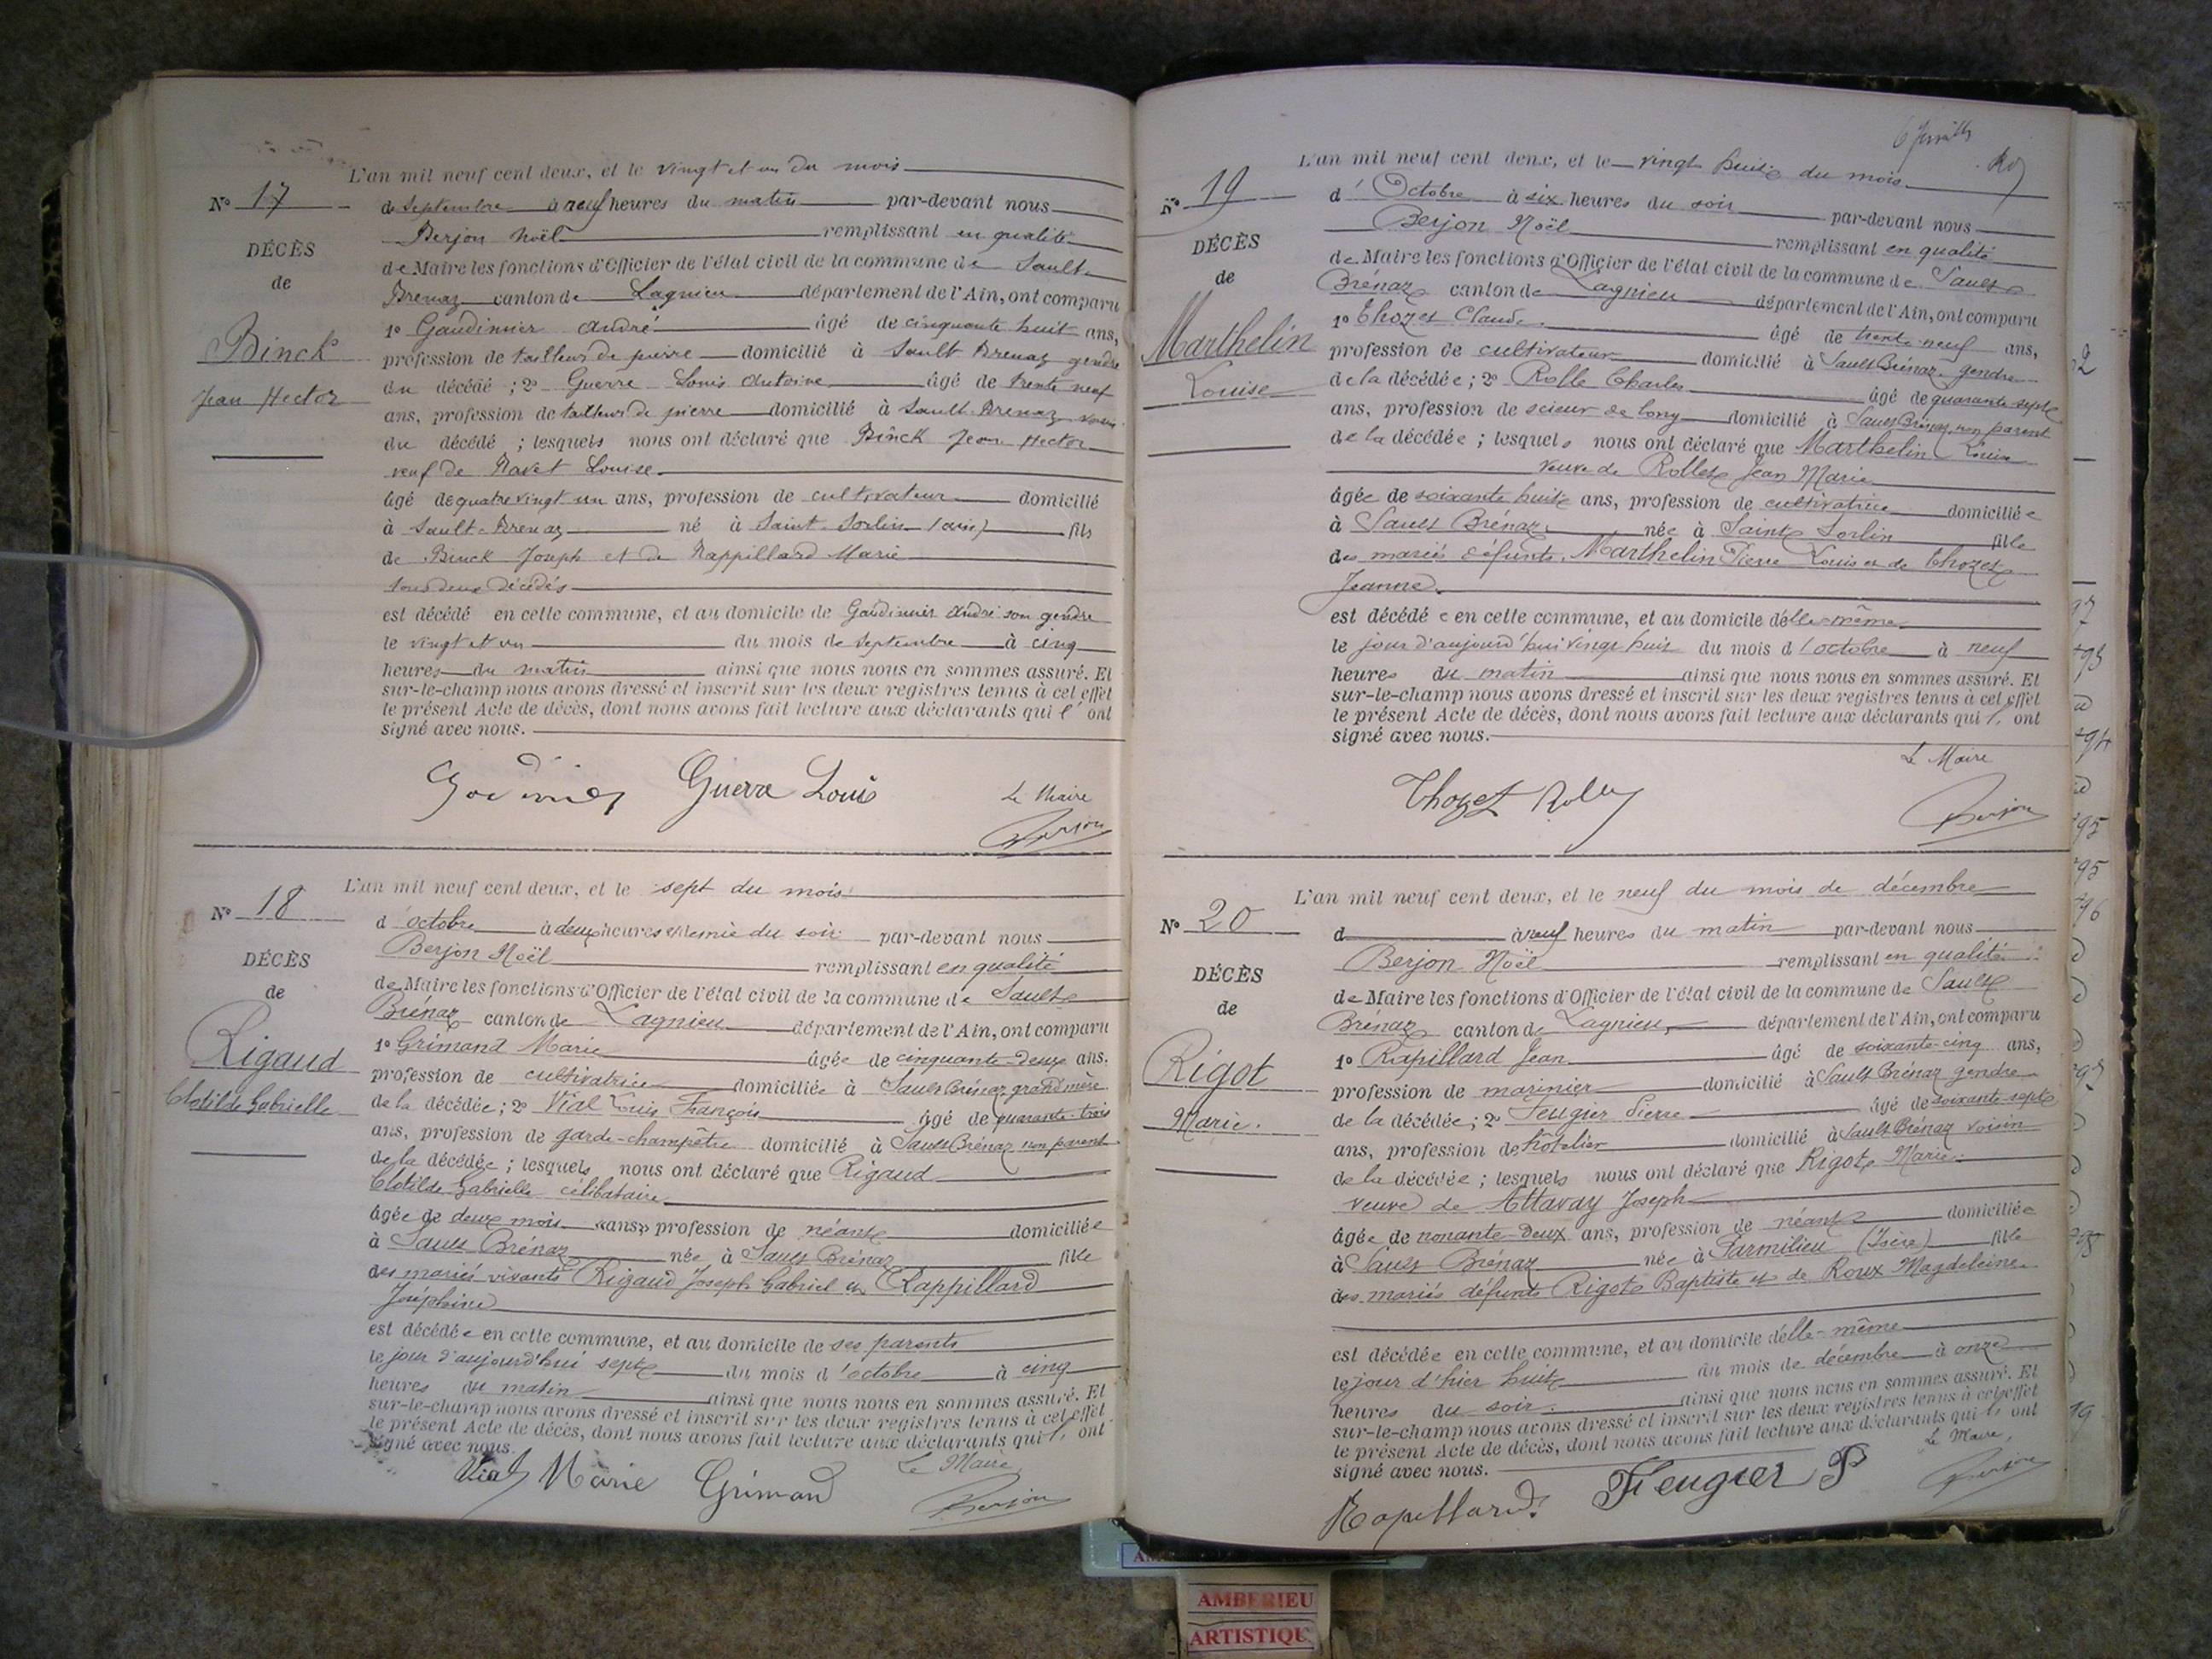 L'an mil neuf cent deux, et le vingt et un du mois
N° 17
de septembre à neuf heures du matin par-devant nous
Berjon Noël remplissant en qualité
DÉCÈS
de Maire les fonctions d'Officier de l'état civil de la commune de Sault-
de
Brenaz canton de Lagnieu département de l'Ain, ont comparu
1° Gaudinnier André âgé de cinquante huit ans,
Binck
profession de tailleur de pierre domicilié à Sault-Brenaz gendre
Jean Hector
du décédé ; 2° Guerre Louis Antoine âgé de trente neuf
ans, profession de tailleur de pierre domicilié à Sault-Brenaz voisin
du décédé ; lesquels nous ont déclaré que Binck Jean Hector
veuf de Navet Louise
âgé de quatre vingt un ans, profession de cultivateur domicilié
à Sault-Brenaz né à Saint-Sorlin (ain) fils
de Binck Joseph et de Rappillard Marie
tous deux décédés
est décédé en cette commune, et au domicile de Gaudinnier André son gendre
le vingt et un du mois de septembre à cinq
heures du matin ainsi que nous nous en sommes assuré. Et
sur-le-champ nous avons dressé et inscrit sur les deux registres tenus à cet effet
le présent Acte de décès, dont nous avons fait lecture aux déclarants qui l'ont
signé avec nous.
Guerre Louis Le Maire
Berjon
L'an mil neuf cent deux, et le sept du mois
N° 18
d'octobre à deux heures et demie du soir par-devant nous
Berjon Noël remplissant en qualité
DÉCÈS
de Maire les fonctions d'Officier de l'état civil de la commune de Sault
de
Brénaz canton de Lagnieu département de l'Ain, ont comparu
1° Grimand Marie âgée de cinquante-deux ans.
Rigaud
profession de cultivatrice domiciliée à Sault Brénaz grand'mère
Clotilde Gabrielle
de la décédée ; 2° Vial Louis François âgé de quarante-trois
ans, profession de garde-champêtre domicilié à Sault Brénaz non parent
de la décédée ; lesquels nous ont déclaré que Rigaud
Clotilde Gabrielle célibataire
âgée de deux mois "ans" profession de néant domiciliée
à Sault Brénaz née à Sault Brénaz fille
des mariés vivants Rigaud Joseph Gabriel et Rappillard
Joséphine
est décédée en cette commune, et au domicile de ses parents
le jour d'aujourd'hui sept du mois d'octobre à cinq
heures du matin ainsi que nous nous en sommes assuré. Et
sur-le-champ nous avons dressé et inscrit sur les deux registres tenus à cet effet
le présent Acte de décès, dont nous avons fait lecture aux déclarants qui l'ont
signé avec nous.
Vial Marie Grimand Le Maire
Berjon
L'an mil neuf cent deux, et le vingt huit du mois
N° 19
d'Octobre à six heures du soir par-devant nous
Berjon Noël remplissant en qualité
DÉCÈS
de Maire les fonctions d'Officier de l'état civil de la commune de Sault
de
Brénaz canton de Lagnieu département de l'Ain, ont comparu
1° Thozet Claude âgé de trente neuf ans,
Marthelin
profession de cultivateur domicilié à Sault Brénaz gendre
Louise
de la décédée ; 2° Rolle Charles âgé de quarante sept
ans, profession de scieur de long domicilié à Sault Brénaz non parent
de la décédée ; lesquels nous ont déclaré que Marthelin Louise
veuve de Rollet Jean Marie
âgée de soixante huit ans, profession de cultivatrice domiciliée
à Sault Brénaz née à Saint Sorlin fille
des mariés défunts Marthelin Pierre Louis et de Thozet
Jeanne
est décédée en cette commune, et au domicile d'elle-même
le jour d'aujourd'hui vingt huit du mois d'octobre à neuf
heures du matin ainsi que nous nous en sommes assuré. Et
sur-le-champ nous avons dressé et inscrit sur les deux registres tenus à cet effet
le présent Acte de décès, dont nous avons fait lecture aux déclarants qui l'ont
signé avec nous.
Le Maire
Thozet
Berjon
L'an mil neuf cent deux, et le neuf du mois de décembre
N° 20
d à neuf heures du matin par-devant nous
Berjon Noël remplissant en qualité
DÉCÈS
de Maire les fonctions d'Officier de l'état civil de la commune de Sault
de
Brénaz canton de Lagnieu département de l'Ain, ont comparu
1° Rapillard Jean âgé de soixante-cinq ans,
Rigot
profession de marinier domicilié à Sault Brénaz gendre
Marie.
de la décédée ; 2° Feugier Pierre âgé de soixante-sept
ans, profession de hôtelier domicilié à Sault Brénaz voisin
de la décédée ; lesquels nous ont déclaré que Rigot Marie
veuve de Attavay Joseph
âgée de nonante-deux ans, profession de néant domiciliée
à Sault Brénaz née à Parmilieu (Isère) fille
des mariés défunts Rigot Baptiste et de Roux Magdeleine
est décédée en cette commune, et au domicile d'elle-même
le jour d'hier huit du mois de décembre à onze
heures du soir ainsi que nous nous en sommes assuré. Et
sur-le-champ nous avons dressé et inscrit sur les deux registres tenus à cet effet
le présent Acte de décès, dont nous avons fait lecture aux déclarants qui l'ont
signé avec nous. Le Maire,
Rapillard Feugier P Berjon
AMBERIEU
ARTISTIQU